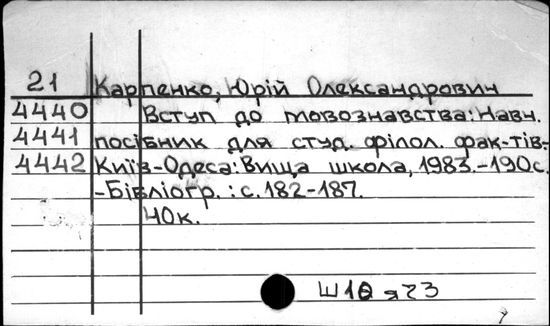 21 Карпенко, Юрій Олександрович
4440 Вступ до мовознавства: Навч.
4441 посібник для студ. філол. фак-тів.-
4442 Київ-Одеса: Вища школа, 1983.-190с.
-Бібліогр.: с. 182-187.
40к.
Ш10 я73